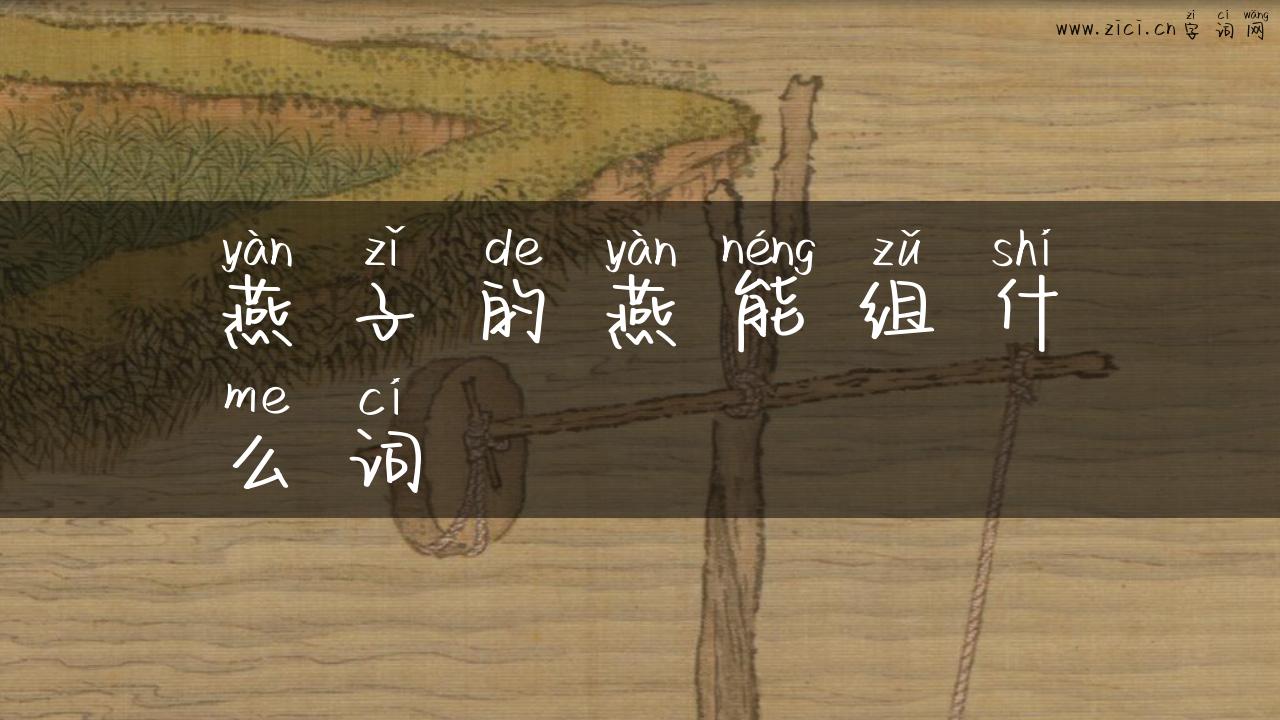 zì cí wǎng
www.zici.cn字词网
yàn zǐ de yàn néng zǔ shí
燕子的燕能组什
me cí
么词